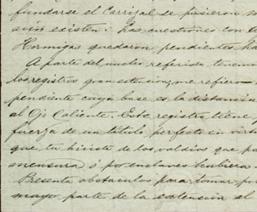 fundarse el Carrizal se pusieron
aún existen: las cuestiones con
Hormigas quedaron pendientes
Aparte del motivo referido tenemos
los registros gran extension, me refiero
pendiente cuya base es la distancia
al Ojo Caliente. Este registro tiene
fuerza de un título perfecto en virtud
que tu hiciste de los valdios que
mensura ó por enclaves hubiera
Presenta obstaculos para tomar
mayor parte de la extension el